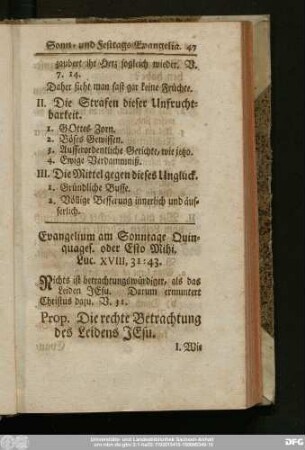 Sonn- und Festags-Evangelia. 47
zaubert ihr Herz sogleich wieder. V.
7. 14.
Daher sieht man fast gar keine Früchte.
II. Die Strafen dieser Unfrucht-
barkeit.
1. GOttes Zorn.
2. Böses Gewissen.
3. Ausserordentliche Gerichte, wie jetzo.
4. Ewige Verdammniß.
III. Die Mittel gegen dieses Unglück.
1. Gründliche Busse.
2. Völlige Besserung innerlich und äus-
serlich.
Evangelium am Sonntage Quin-
quages. oder Esto Mihi.
Luc. XVIII, 31:43.
Nichts ist betrachtungswürdiger, als das
Leiden JEsu. Darum ermuntert
Christus dazu. V. 31.
Prop. Die rechte Betrachtung
des Leidens JEsu.
I. Wie
Universitäts- und Landesbibliothek Sachsen-Anhalt
DFG